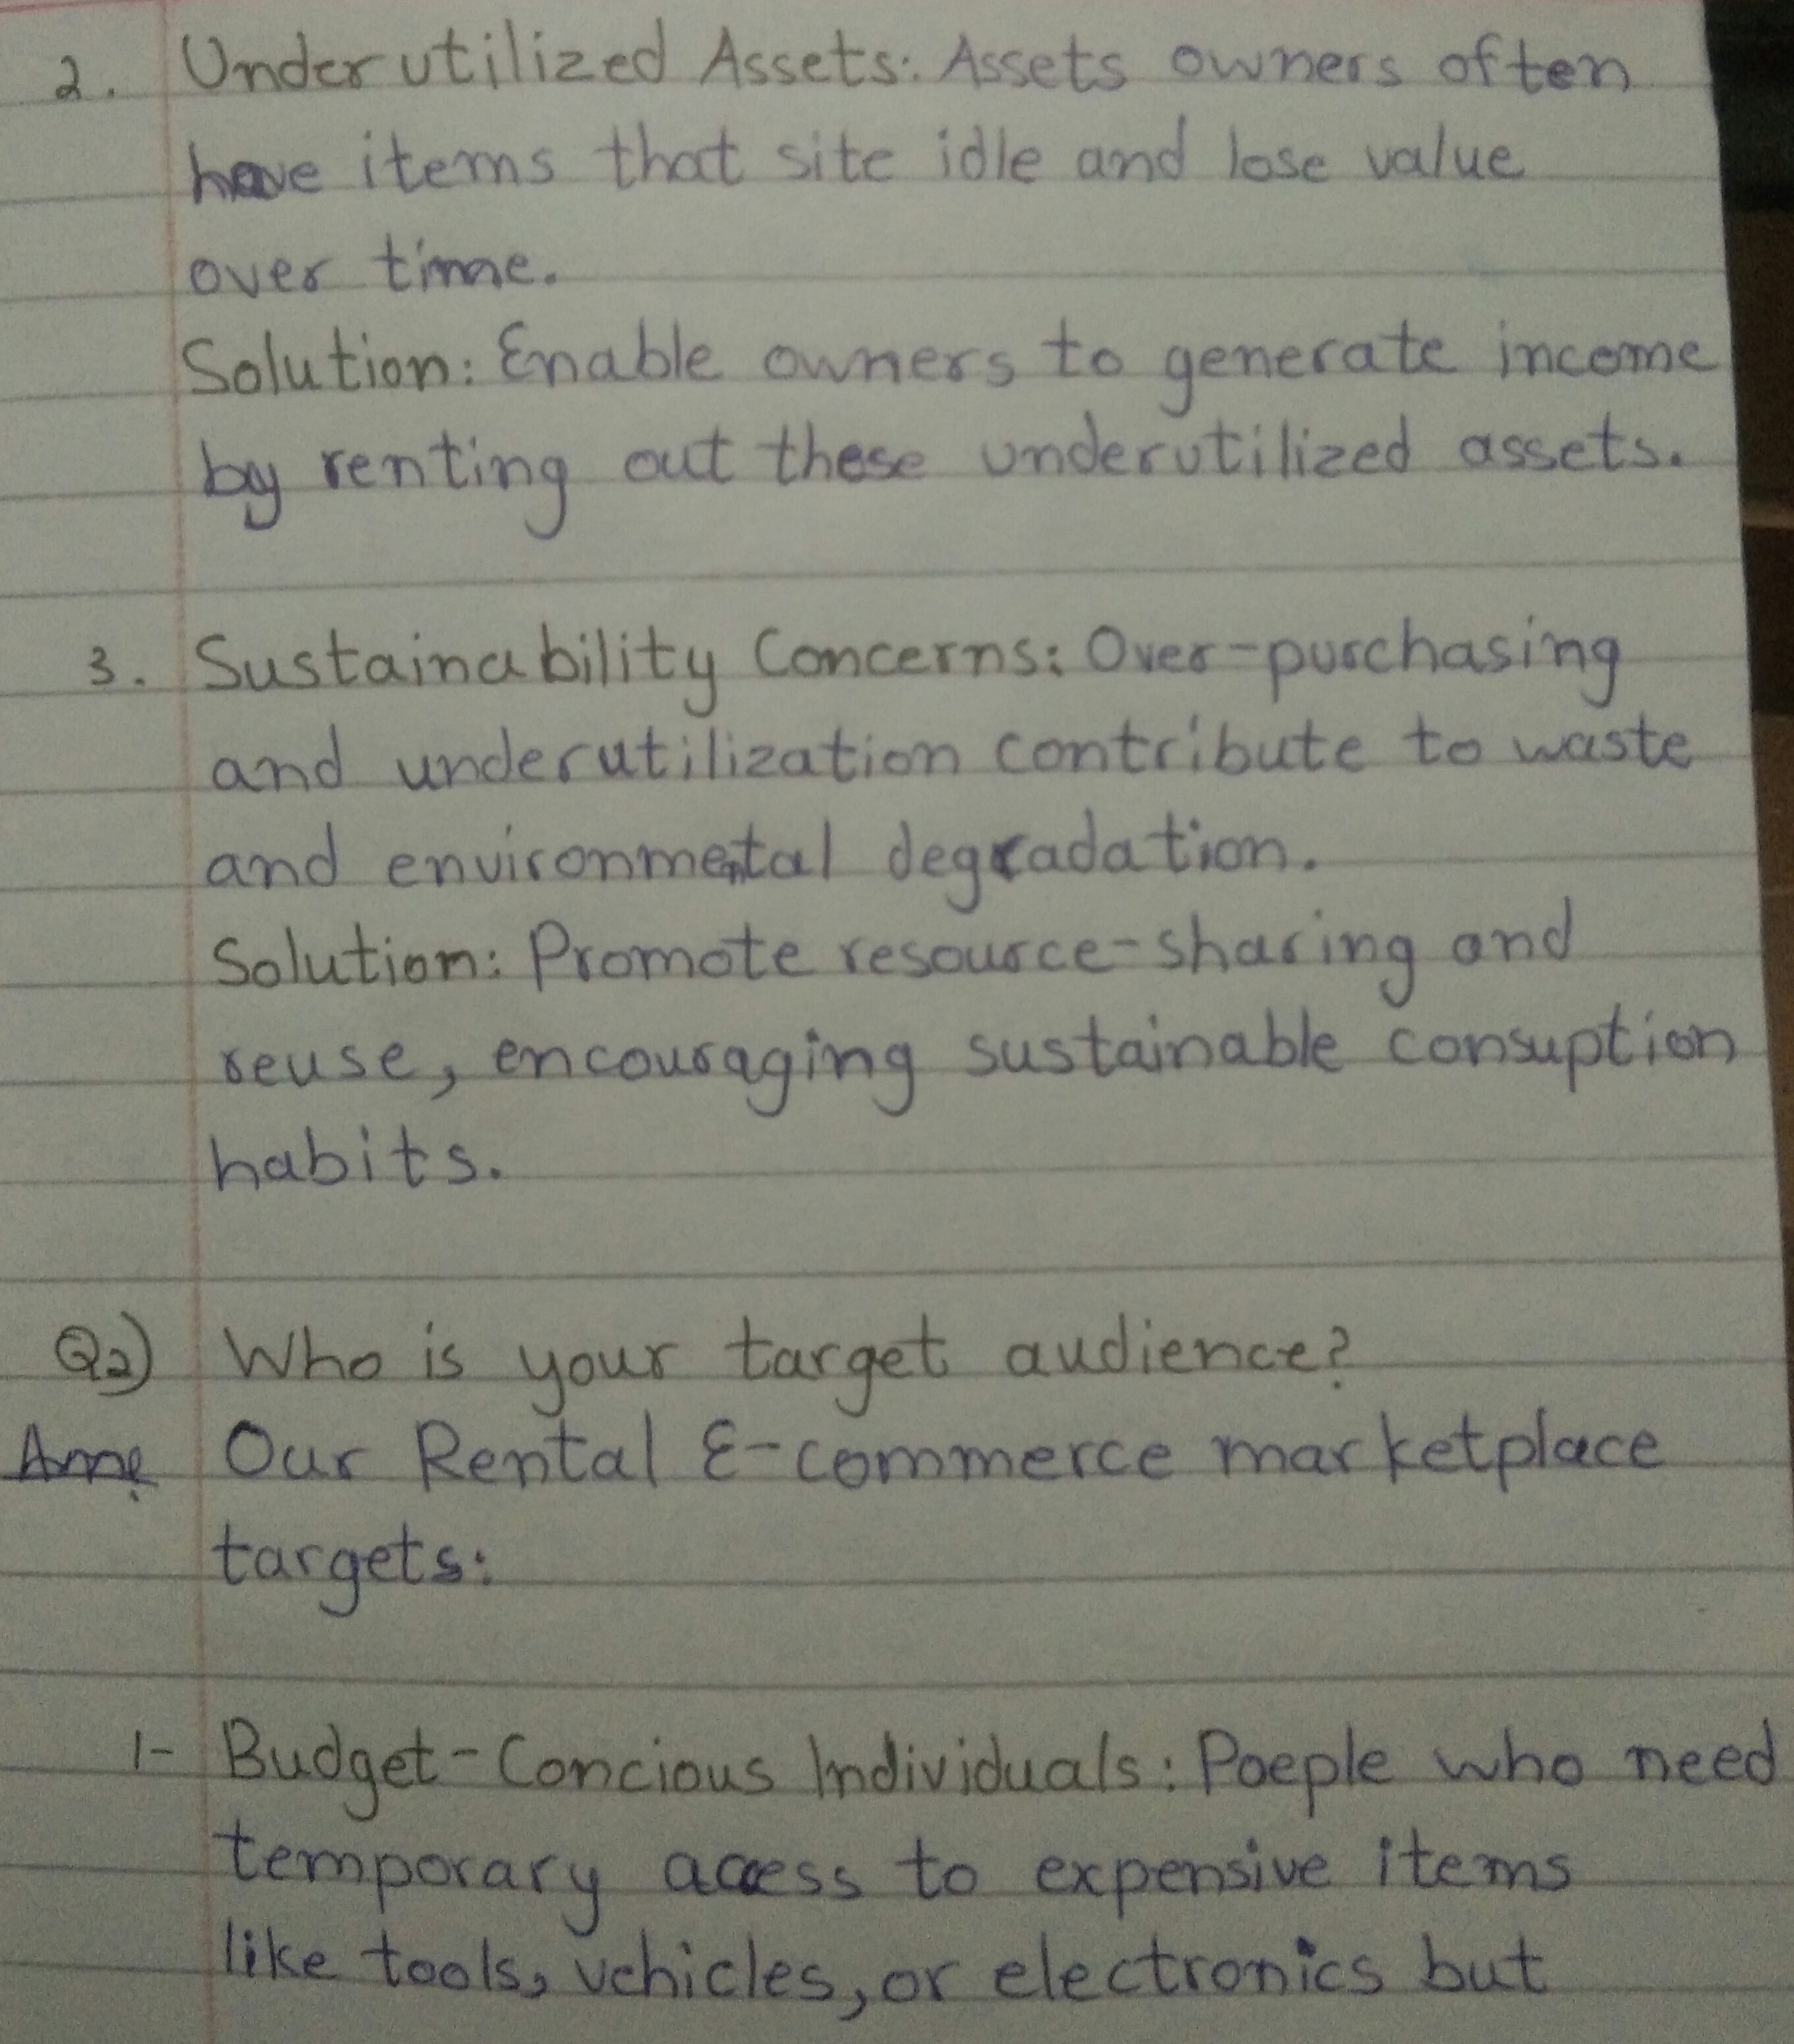 2. Underutilized Assets: Assets owners often
have items that site idle and lose value
over time.
Solution: Enable owners to generate income
by renting out these underutilized assets.
3. Sustainability Concerns: Over-purchasing
and underutilization contribute to waste
and environmental degradation.
Solution: Promote resource-sharing and
reuse, encouraging sustainable consuption
habits.
Q2) Who is your target audience?
Our Rental E-commerce marketplace
targets:
1- Budget-Concious Individuals: Poeple who need
temporary access to expensive items
like tools, vehicles, or electronics but